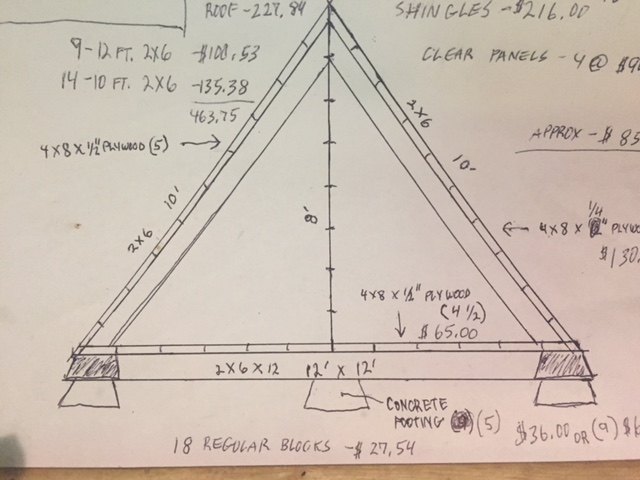 ROOF - 227.84
SHINGLES - $216.00
9 - 12 FT. 2X6 - $100.53
CLEAR PANELS - 4 @
14 - 10 FT. 2X6 - 135.38
463.75
2X6
APPROX - $ 85
4X8X1/2" PLYWOOD (5)
10'
10'
8'
2X6
4X8 X 1/4" PLYW
$130.
4X8 X 1/2" PLYWOOD
(4 1/2)
$65.00
2X6X12
12' X 12'
CONCRETE
FOOTING (5)
$36.00 OR (9) $6
18 REGULAR BLOCKS - $27.54